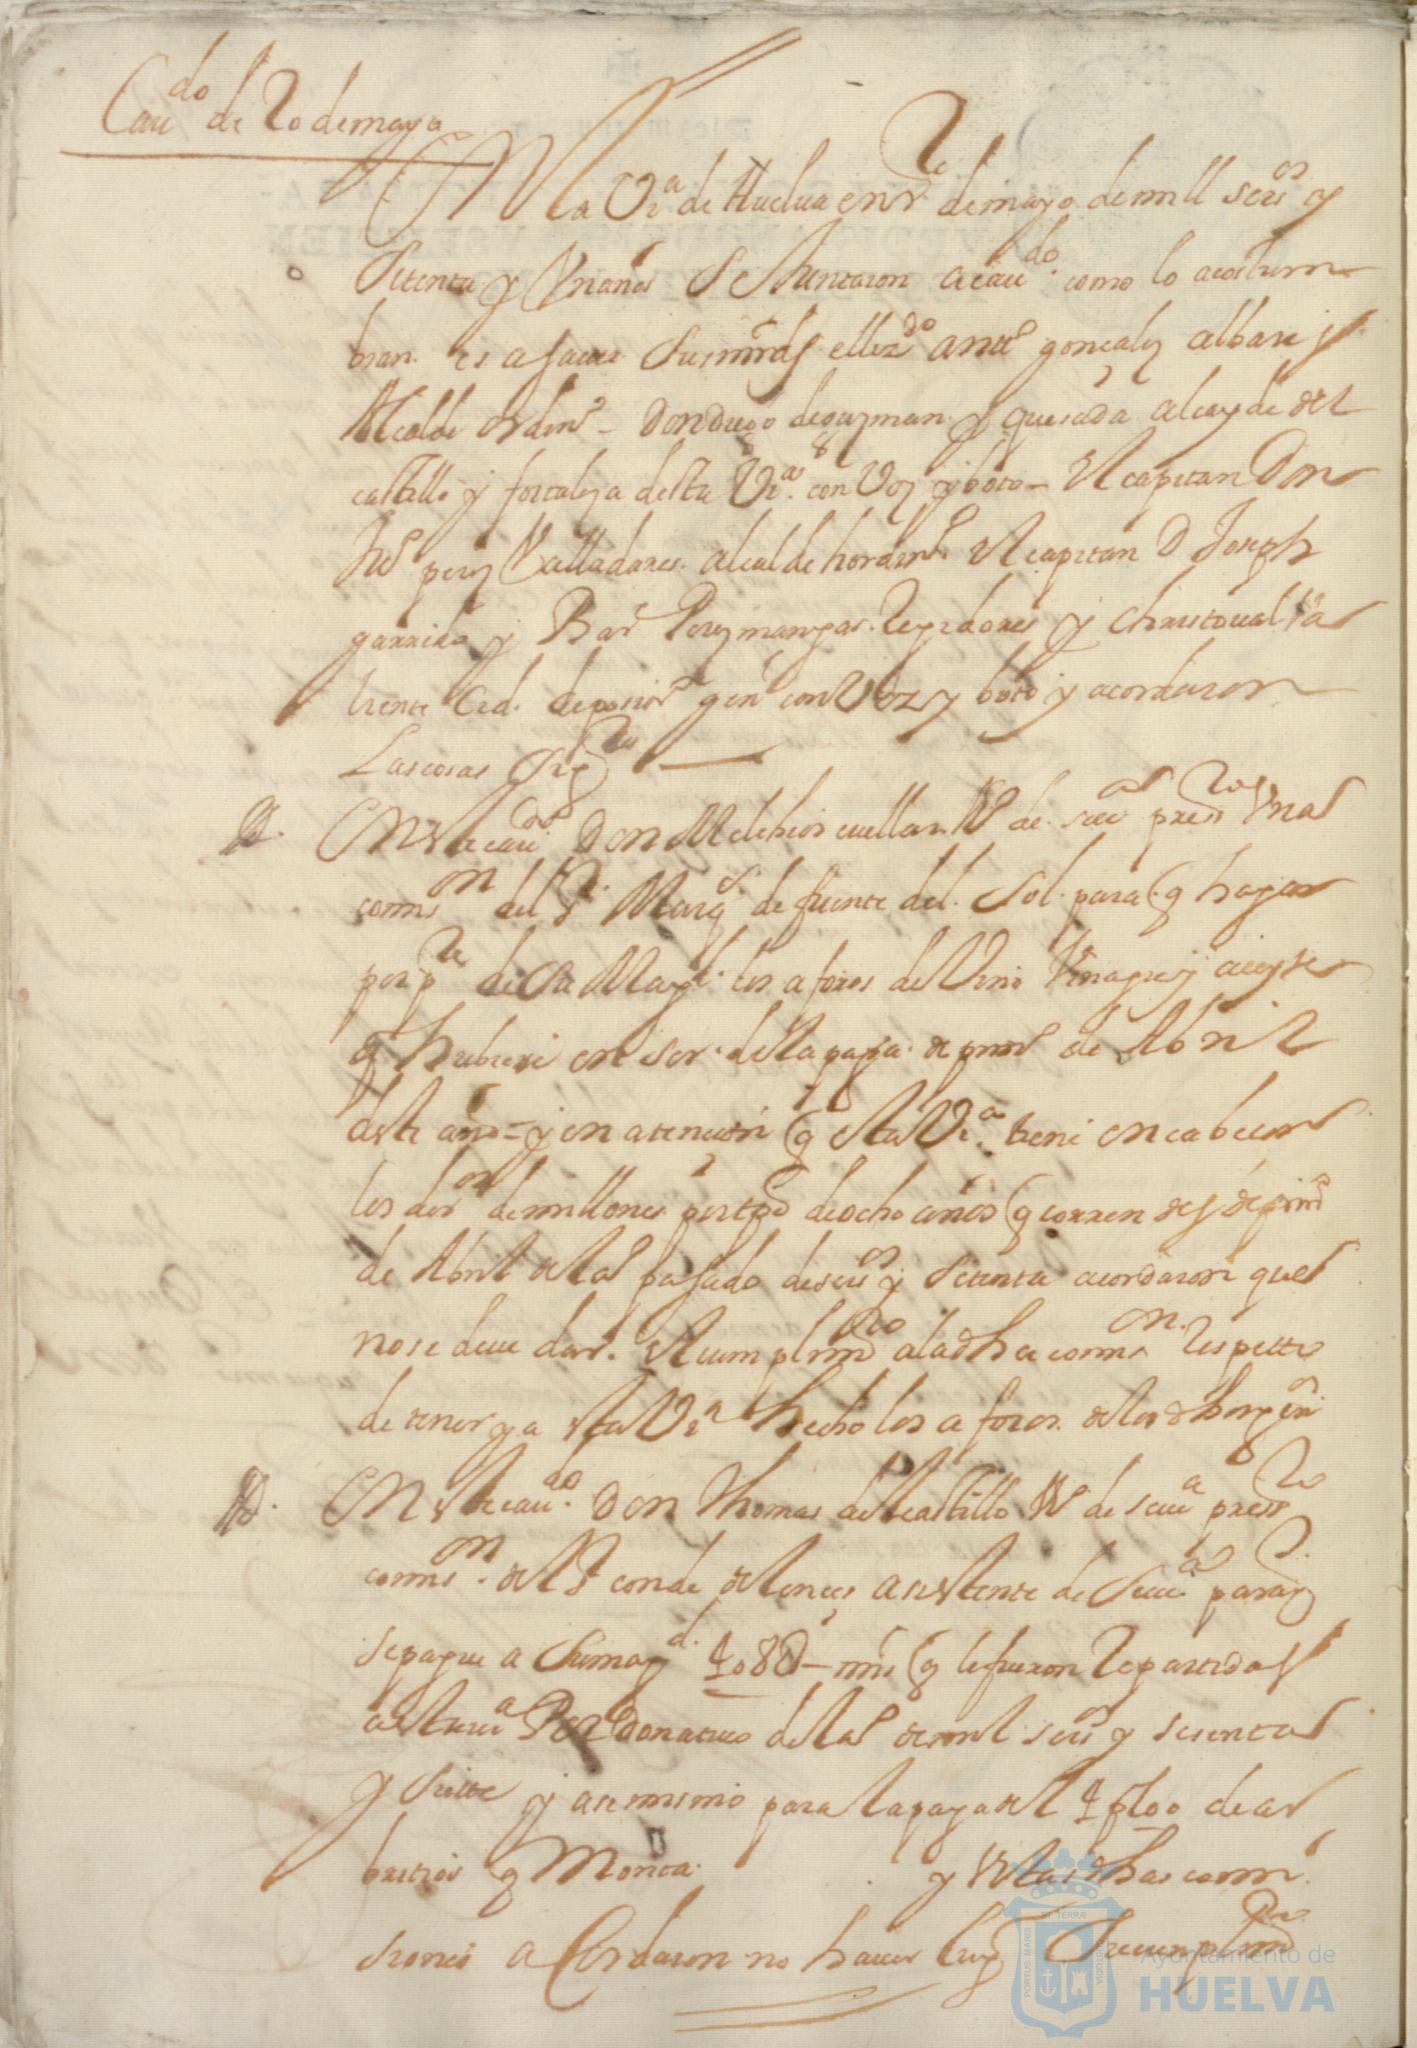 Caudo de 20 de mayo
En la Va de Huelua en Vte de mayo de mill seiso y
Setenta y Un años Se Juntaron a caudo como lo acostum
bran es a sauer Sus mrds el lizdo anto gonçalez albarez
Alcalde ordino - Don diego de guzman y quesada alcayde del
castillo y fortaleza desta Va con Voz y boto - El capitan Don
Juo perez Valladares alcalde hordino El capitan D Joseph
garrido y Bar Perez manzas Regidores y christoual
deposio gen con Voz y boto y acordaron
Las cosas sigtes
En este caudo Don Melchior cuellar Vo de seua presto Una
comison del Sr Marqs de fuente del Sol para q hagan
por pte de Su Magd los aforos de Vino Vinagre y aceyte
q hubiere en ser desta paga de primo de Abril
deste año - y en atencion q esta Va tiene encabecon
los deros de millones por tpo de ocho años q corren desde primo
de Abril del año pasado de seisos y Setenta acordaron que
no se deue dar El cumplimto a la dha comison Respetto
de tener ya esta Va hecho los aforos de los dhos
En este caudo Don Thomas del castillo Vo de seua presto
comison del Sr conde de lences asistente de Seua para q
se pague a Su magd mrs q le fueron Repartidos
a esta Va Por Donatiuo del año de mil seisos y sesenta
y Siette y asi mismo para la paga del de ar
bitrios q Monta y Vistas dhas comi
siones aCordaron no hauer lugr Su cumplimto
Ayuntamiento de
HUELVA